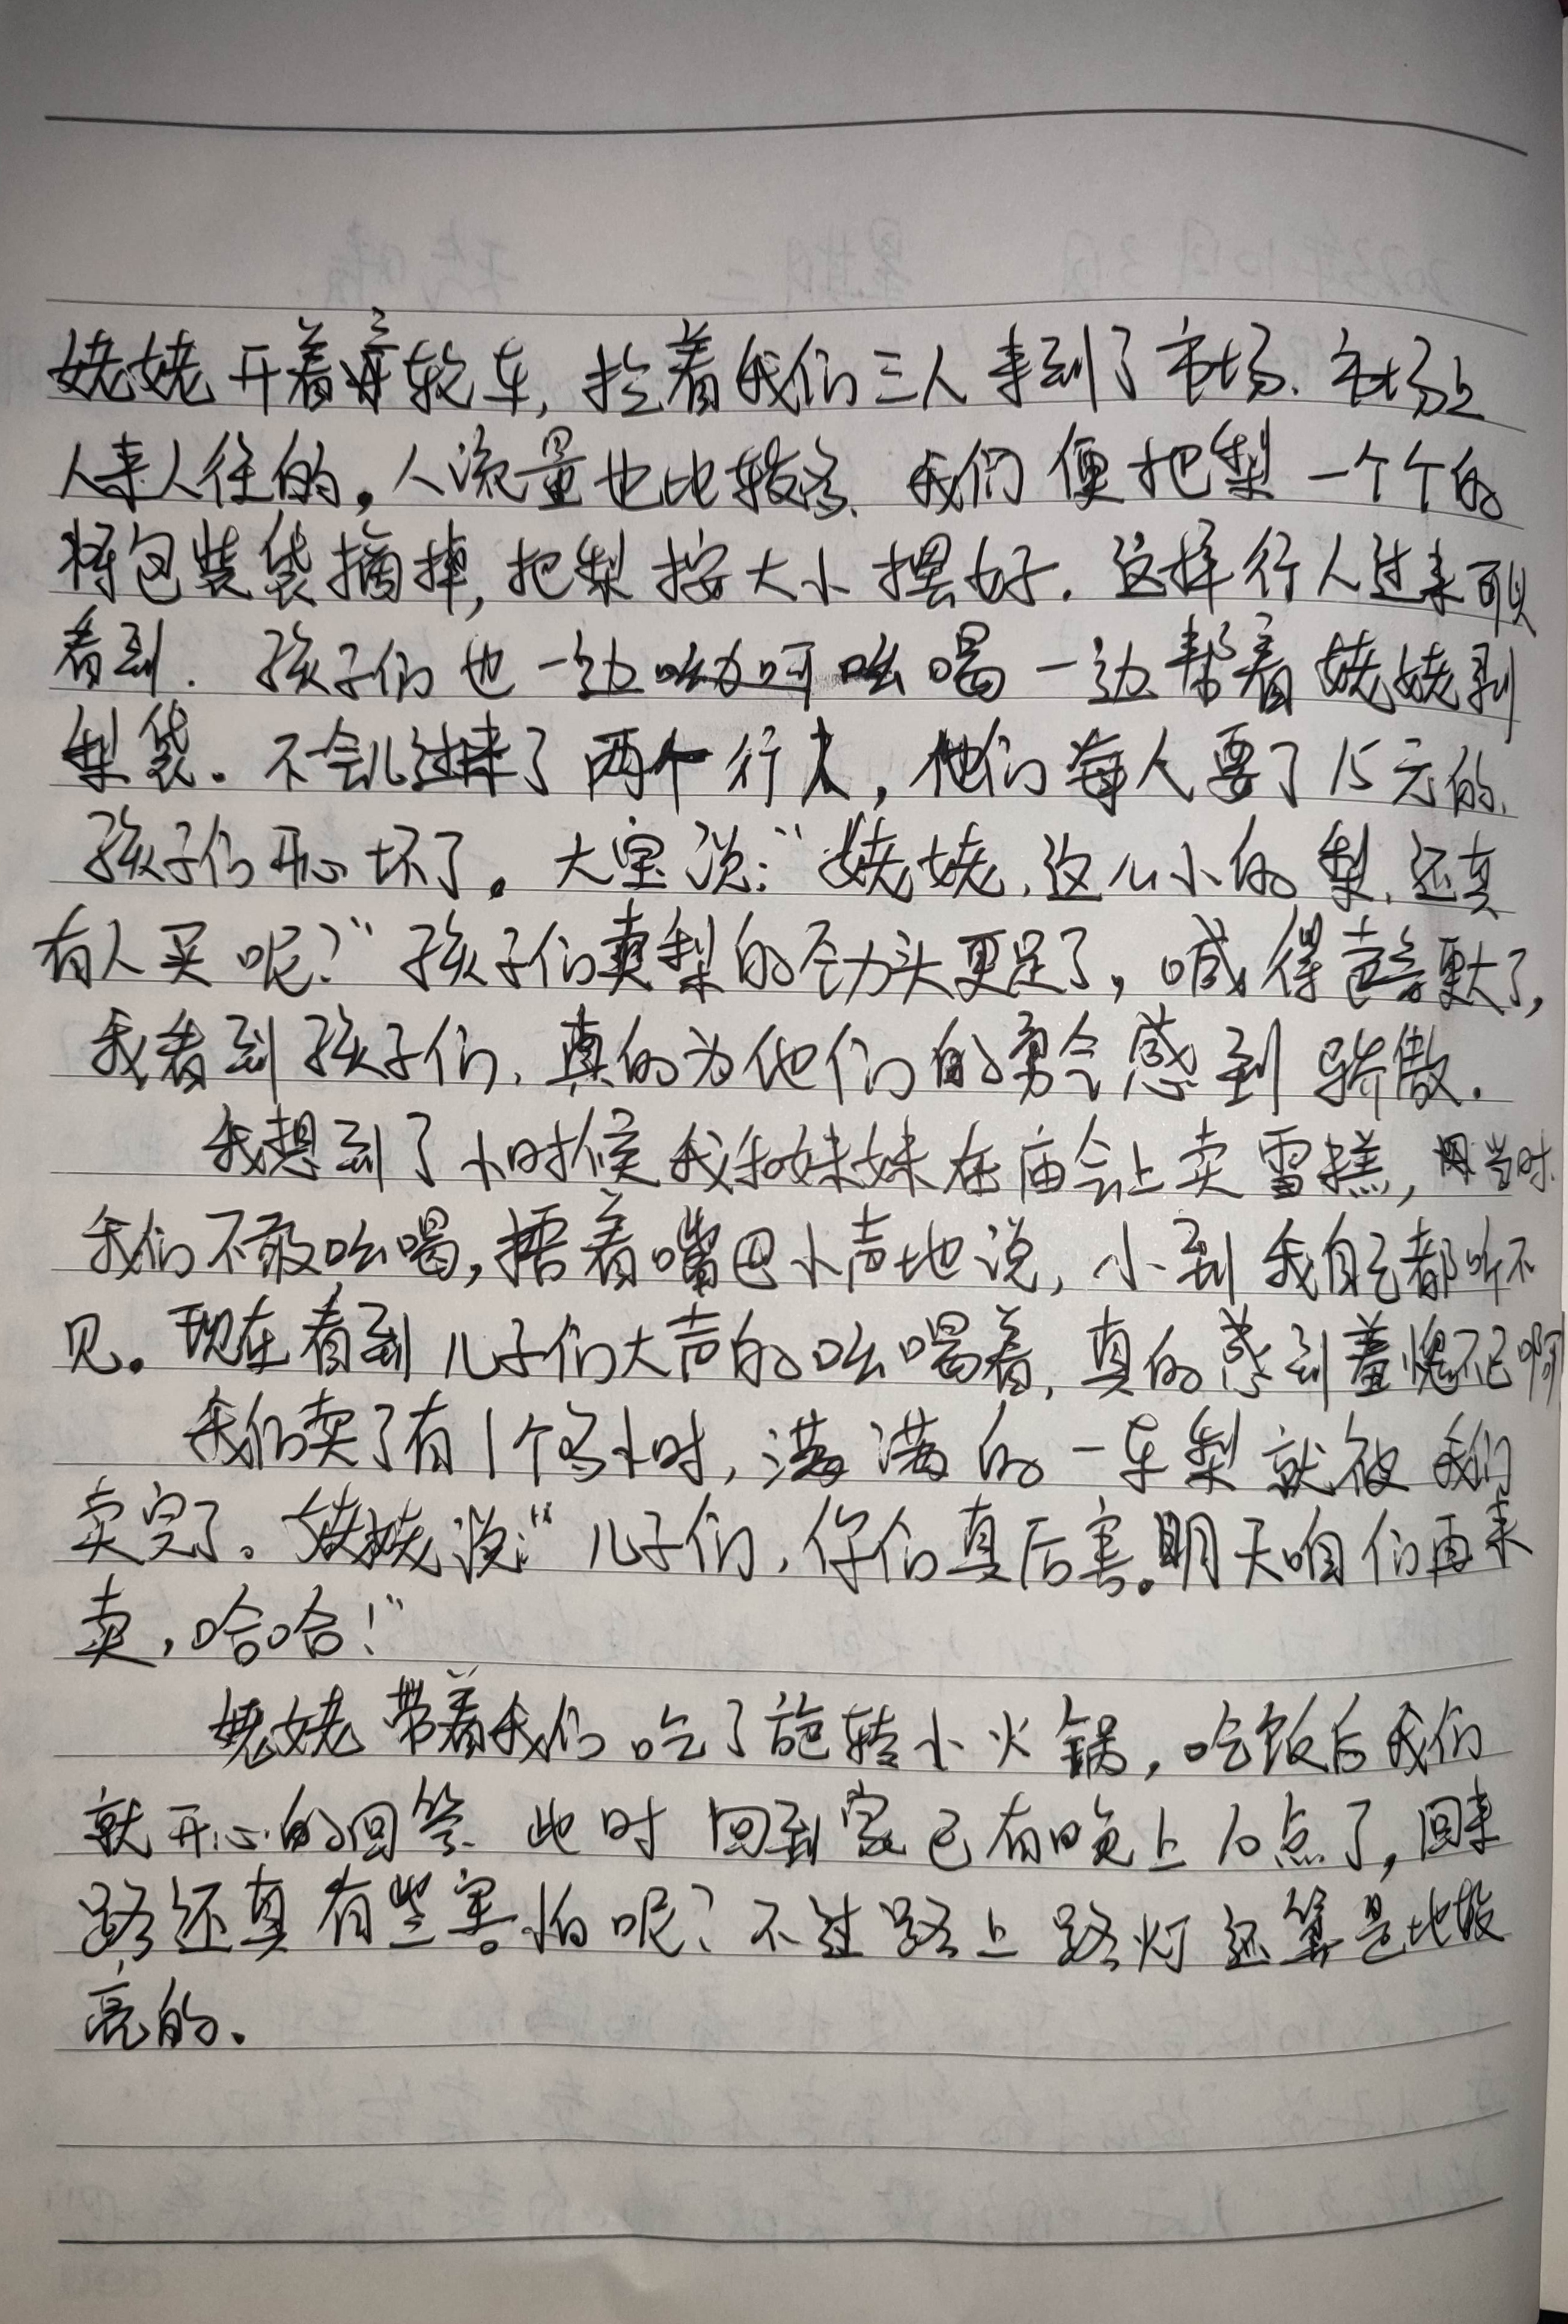 姥姥开着轿车，拉着我们三人来到了市场.市场上
人来人往的。人流量也比较多.我们便把梨一个个的
将包装袋摘掉,把梨按大小摆好.这样行人过来可以
看到.孩子们也一边吆喝一边帮着姥姥剥
梨袋。不会儿过来了两个行人，他们每人要了15元的.
孩子们开心坏了。大宝说:“姥姥,这么小的梨,还真
有人买呢?”孩子们卖梨的劲头更足了,喊得声音更大了,
我看到孩子们,真的为他们的勇气感到骄傲.
我想到了小时候我和妹妹在庙会上卖雪糕,当时
我们不敢吆喝,捂着嘴巴小声地说,小到我自己都听不
见。现在看到儿子们大声的吆喝着,真的感到羞愧不已啊
我们卖了有1个多小时,满满的一车梨就被我们
卖完了。姥姥说:“儿子们,你们真厉害。明天咱们再来
卖,哈哈!”
姥姥带着我们吃了旋转小火锅,吃饭后我们
就开心的回家.此时回到家已有晚上10点了,回来
路还真有些害怕呢?不过路上路灯还算是比较
亮的.